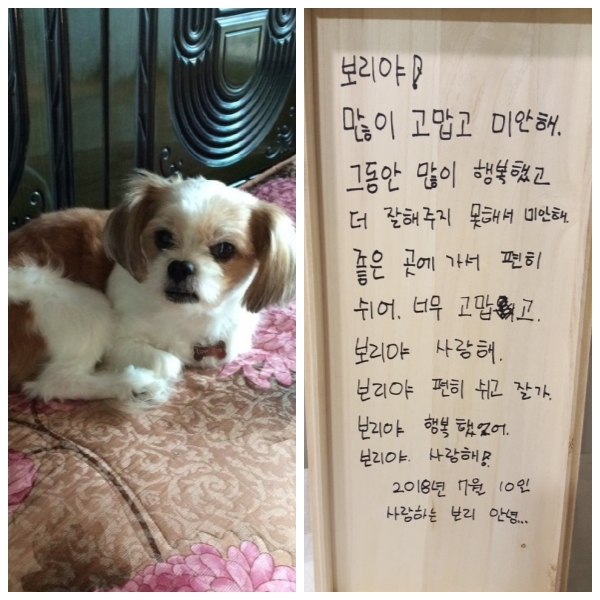 보리야!
많이 고맙고 미안해.
그동안 많이 행복했고
더 잘해주지 못해서 미안해.
좋은 곳에 가서 편히
쉬어. 너무 고맙고.
보리야 사랑해.
보리야 편히 쉬고 잘가.
보리야 행복했어.
보리야. 사랑해!
2018년 7월 10일
사랑하는 보리 안녕...